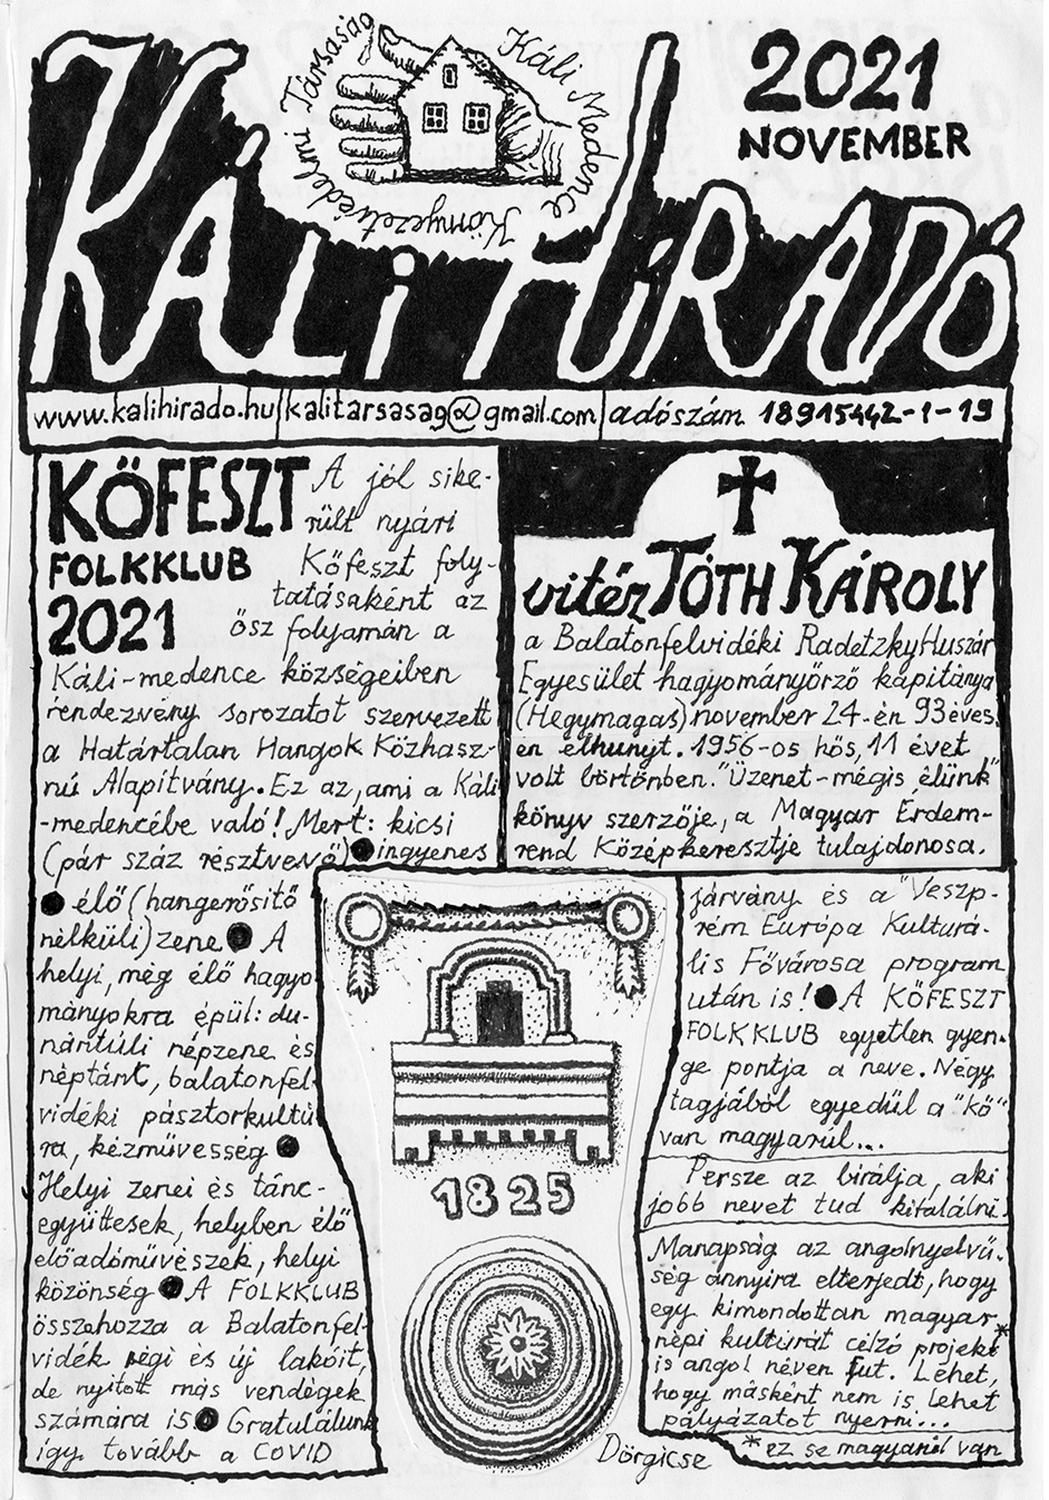 Káli Medence Környezetvédelmi Társaság
2021
NOVEMBER
KÁLi HÍRADÓ
www.kalihirado.hu|kalitarsasag@gmail.com|adószám 18915442-1-19
KŐFESZT
FOLKKLUB
2021
A jól sike-
rült nyári
Kőfeszt foly-
tatásaként az
ősz folyamán a
Káli-medence községeiben
rendezvény sorozatot szervezett
a Határtalan Hangok Közhasz-
nú Alapítvány. Ez az, ami a Káli
-medencébe való! Mert: kicsi
(pár száz résztvevő)●ingyenes
● élő (hangerősítő
nélküli) zene ● A
helyi, még élő hagyo
mányokra épül: du-
nántúli népzene és
néptánt, balatonfel-
vidéki pásztorkultú
ra, kézművesség ●
Helyi zenei és tánc-
együttesek, helyben élő
előadóművészek, helyi
közönség ● A FOLKKLUB
összehozza a Balatonfel-
vidék régi és új lakóit,
de nyitott más vendégek
számára is ● Gratulálunk
így tovább a COVID
járvány és a "Veszp-
rém Európa Kulturá-
lis Fővárosa program
után is! ● A KŐFESZT
FOLKKLUB egyetlen gyen-
ge pontja a neve. Négy
tagjából egyedül a "kő"
van magyarul...
Persze az bírálja, aki
jobb nevet tud kitalálni.
Manapság az angolnyelvű-
ség annyira elterjedt, hogy
egy kimondottan magyar
népi kultúrát célzó projekt*
is angol néven fut. Lehet,
hogy másként nem is lehet
pályázatot nyerni...
*ez se magyarul van
vitéz TÓTH KÁROLY
a Balatonfelvidéki Radetzky Huszár
Egyesület hagyományőrző kapitánya
(Hegymagas) november 24-én 93 éves.
en elhunyt. 1956-os hős, 11 évet
volt börtönben. "Üzenet-mégis élünk"
könyv szerzője, a Magyar Érdem-
rend Középkeresztje tulajdonosa.
1825
Dörgicse